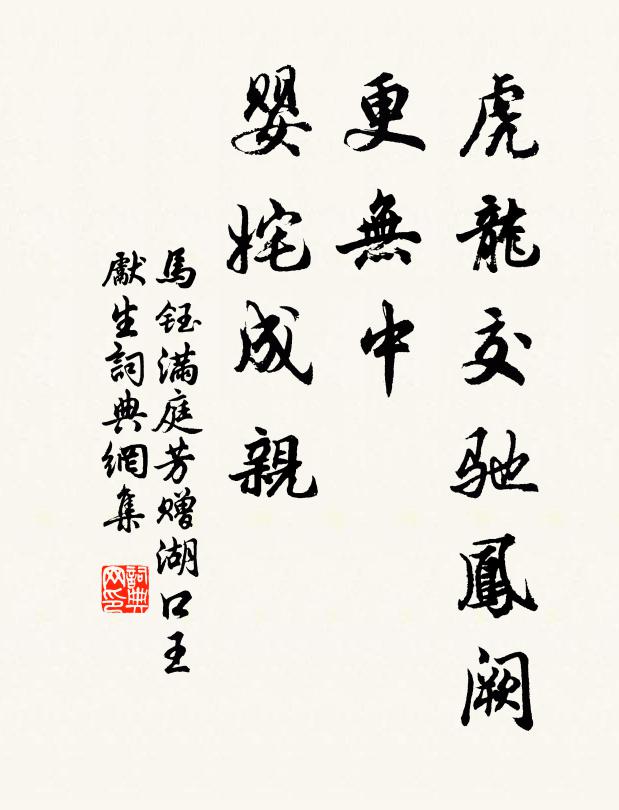 虎龍交馳鳳闕
更無中
嬰姹成親
馬鈺满庭芳赠湖口王
獻生詞典網集
詞典网印